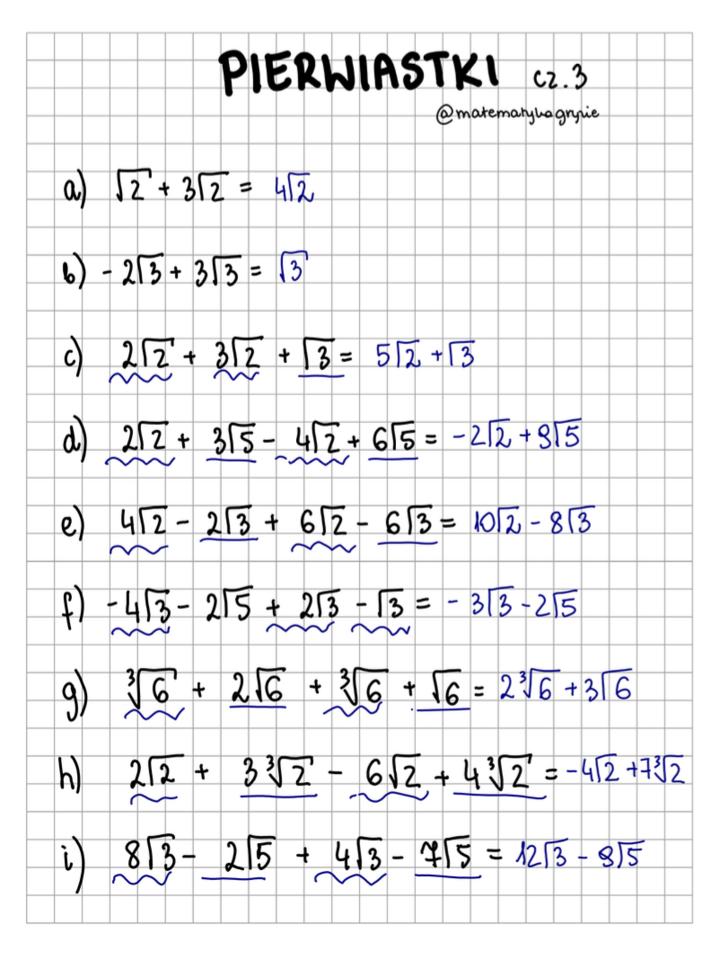 PIERWIASTKI cz.3
@matematykagryzie
a) √2 + 3√2 = 4√2
b) -2√3 + 3√3 = √3
c) 2√2 + 3√2 + √3 = 5√2 + √3
d) 2√2 + 3√5 - 4√2 + 6√5 = -2√2 + 9√5
e) 4√2 - 2√3 + 6√2 - 6√3 = 10√2 - 8√3
f) -4√3 - 2√5 + 2√3 - √3 = -3√3 - 2√5
g) ∛6 + 2√6 + ∛6 + √6 = 2∛6 + 3√6
h) 2√2 + 3∛2 - 6√2 + 4∛2 = -4√2 + 7∛2
i) 8√3 - 2√5 + 4√3 - 7√5 = 12√3 - 9√5